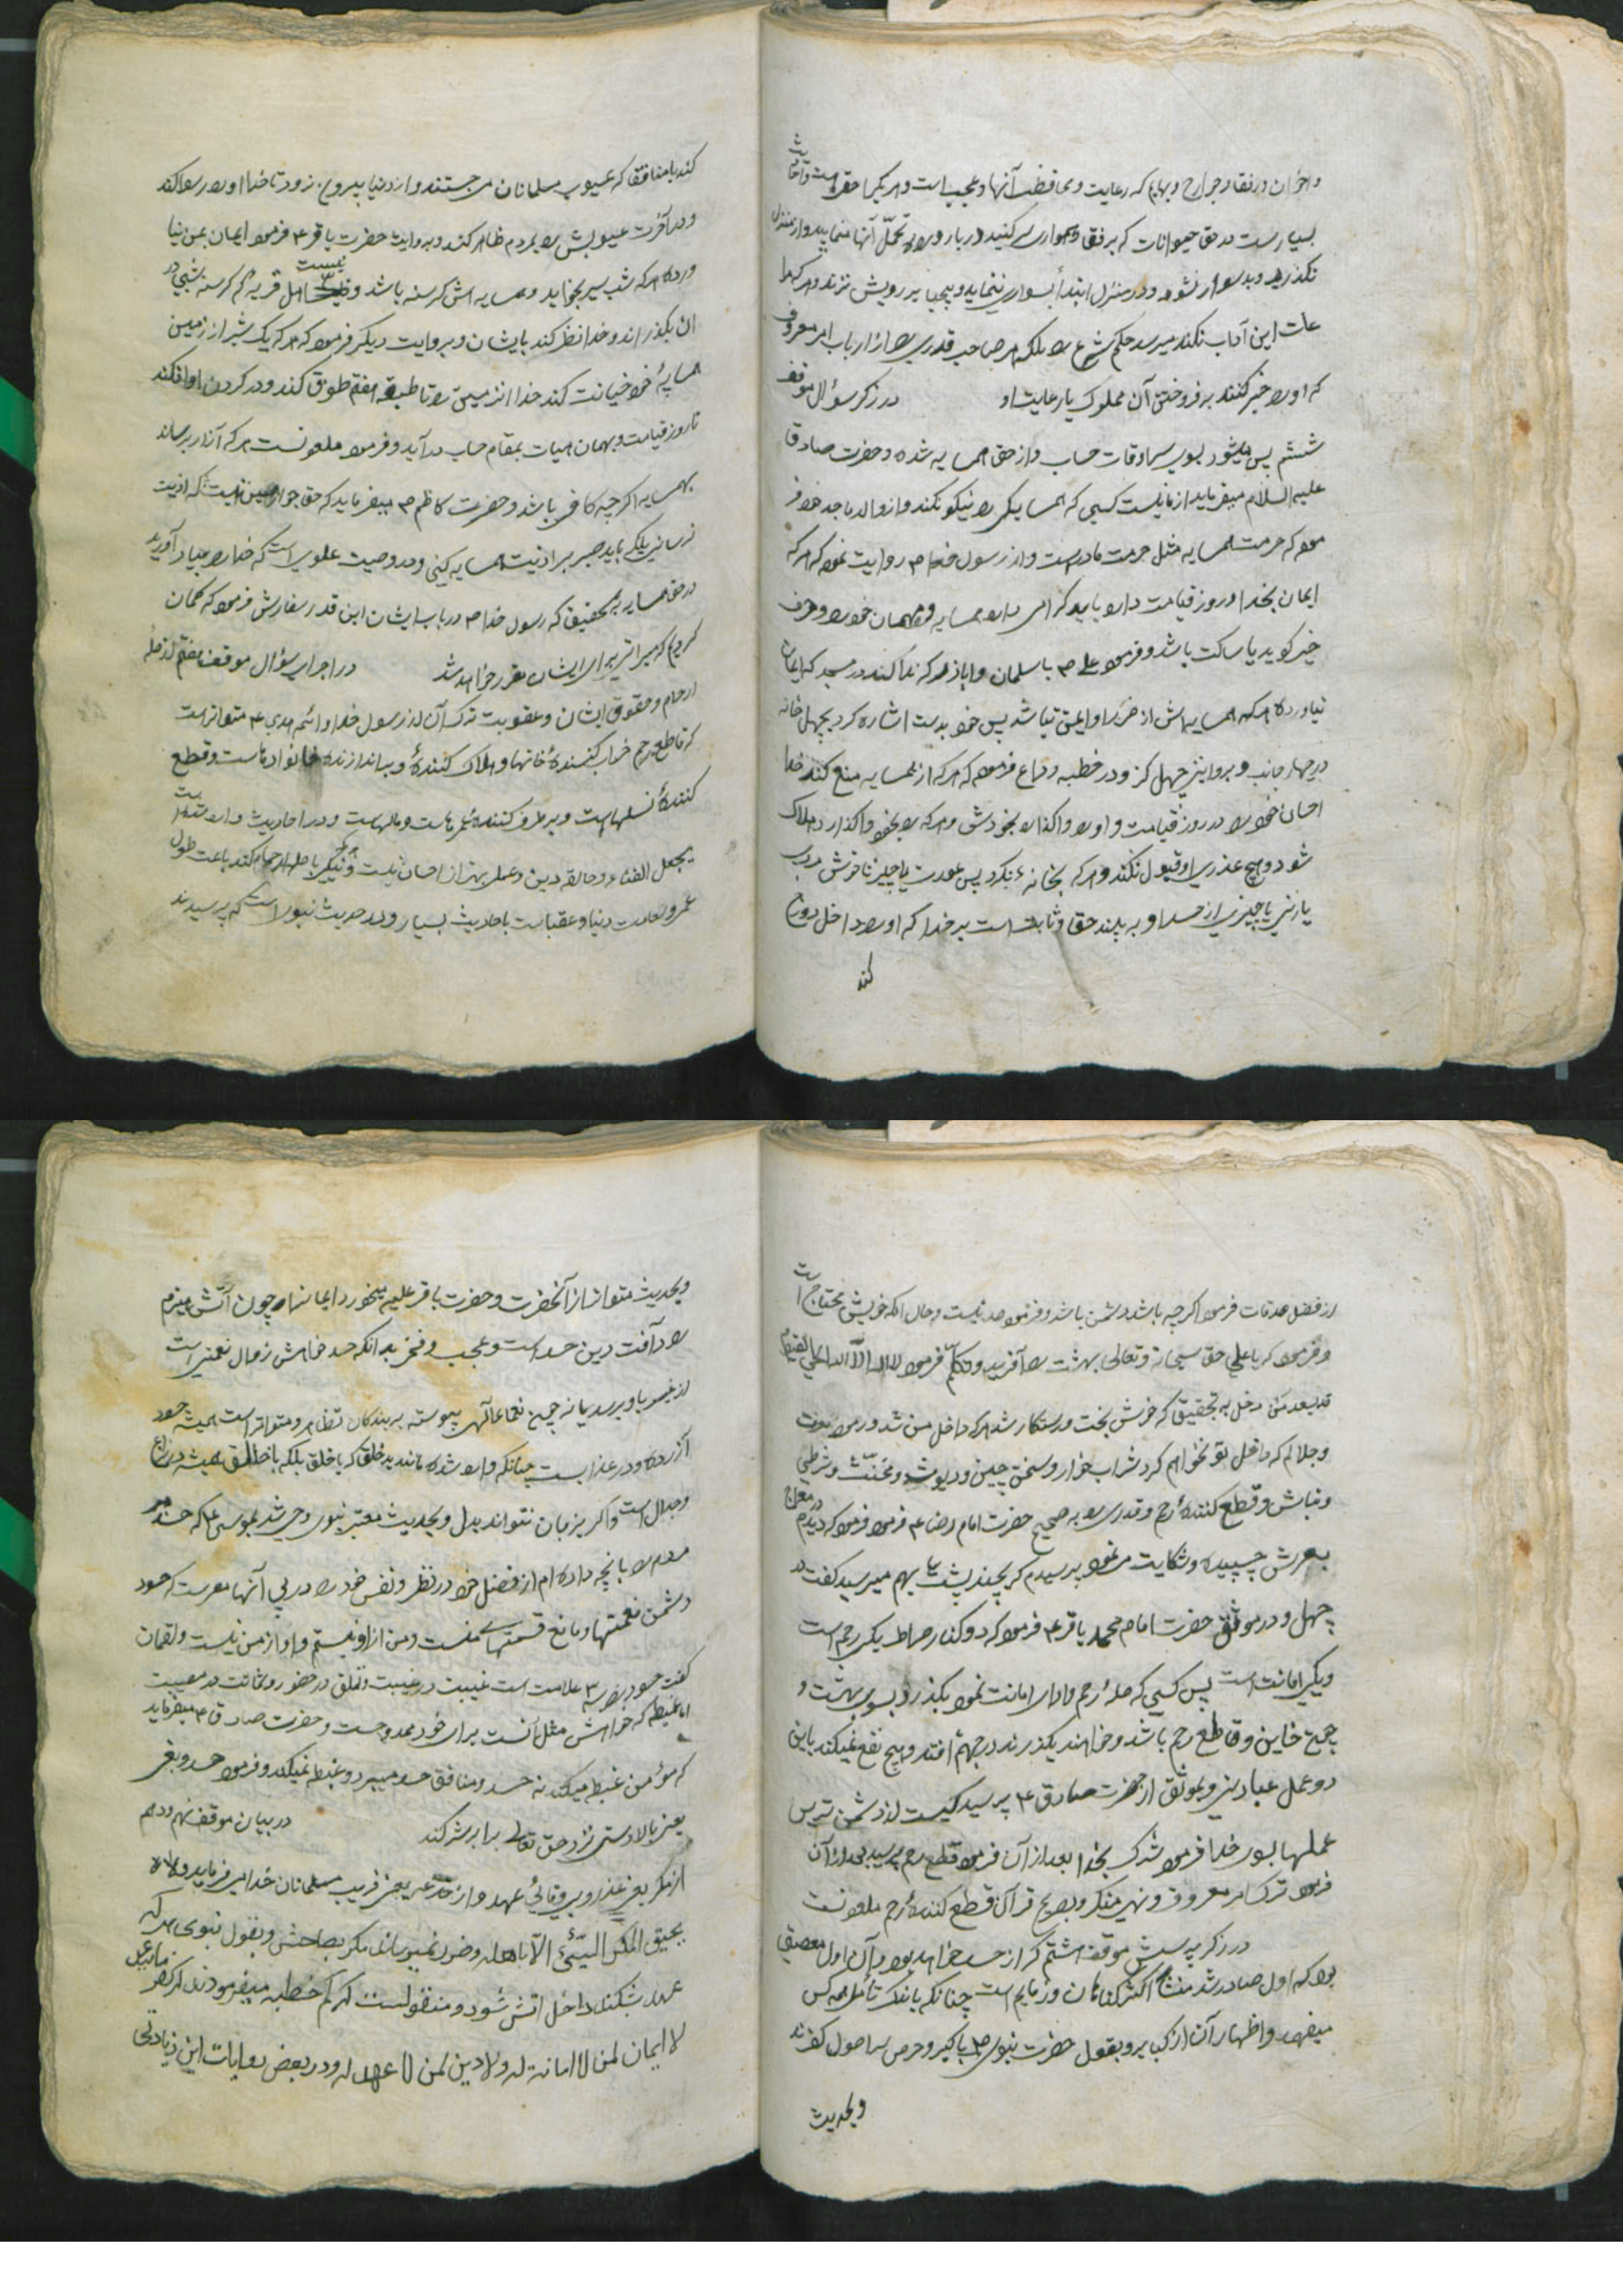 و اخوان و رفقا و جوارح و بهایم که رعایت و محافظت آنها واجبست و هر یک را حقی هست و آفات
بسیارست در حق حیوانات که برفق و همواری سر کنید و بار و را تحمّل آنها نمایید و از منزل
نگذرند و بد سوار نشود و در منزل ابتدا بسواری ننماید و بیجا بر رویش نزند و هر که
این آداب نکند میرسد حکم شرع را بلکه هر صاحب قدری را از ارباب امر معروف
که او را جبر کنند بر فروختن آن مملوک یا رعایت او در ذکر سؤال موقف
ششم پس میشود بسوی سرادقات حساب و از حق همسایه شده و حضرت صادق
علیه السلام میفرماید از ما نیست کسی که همسایگی را نیکو نکند و از والد ماجد خود فر
موده که حرمت همسایه مثل حرمت مادرست و از رسول خدا ص روایت نموده که هر که
ایمان بخدا و روز قیامت دارد باید گرامی دارد همسایه و مهمان خود را و حرف
خیر گوید یا ساکت باشد و فرمود علی ص با سلمان و اباذر که ندا کنند در مسجد که ایمان
نیاورده هر که همسایه اش از ضرر او ایمن نباشد پس خود بدست اشاره کرد بچهل خانه
در چهار جانب و بروایتی چهل گز و در خطبه وداع فرموده که هر که از همسایه منع کند خدا
احسان خود را در روز قیامت و او را واگذارد بخودش و هر که را بخود واگذارد هلاک
شود و هیچ عذری از او قبول نکند و هر که بخانه بنگرد پس عورت یا چیز ناخوش مردی
یا زنی یا چیزی از جسد او به بیند حق و ثابت است بر خدا که او را داخل دوزخ
کند
کند با منافقان که عیوب مسلمانان می جستند و از دنیا بیرون نرود تا خدا او را رسوا کند
و در آخرت عیوبش را بمردم ظاهر کند و به روایت حضرت باقر ع فرمود ایمان بمن نیا
ورده هر که شب سیر بخوابد و همسایه اش گرسنه باشد و نیست اهل قریه کم گرسنه شبی در
ان بگذراند و خدا نظر کند بایشان و بروایت دیگر فرموده که هر که یک شبر از زمین
همسایهٔ خود خیانت کند خدا انزمین را تا طبقه هفتم طوق کند و در گردن او افکند
تا روز قیامت و بهمان هیات بمقام حساب در آید و فرمود ملعونست هر که آزار برساند
بهمسایه اگرچه کافر باشد و حضرت کاظم ص میفرماید که حق جوار همین نیست که اذیت
نرسانی بلکه باید صبر بر اذیت همسایه کنی و در وصیت علویست که خدا را بیاد آورید
در حق همسایه بتحقیق که رسول خدا ص در باب ایشان این قدر سفارش فرموده که گمان
کردم که میراثی برای ایشان مقرر خواهد شد در اجرای سؤال موقف هفتم از صلهٔ
ارحام و حقوق ایشان و عقوبت ترک آن از رسول خدا و ائمه هدی ع متواتر است
که قاطع رحم خراب کنندهٔ خانها و هلاک کنندهٔ و براندازنده خانواده است و قطع
کنندهٔ نسلهاست و برطرف کنندهٔ عمرهاست و مالهاست و در احادیث وارد شده است
یعجل الفناء و حالقه دین و عملی بهتر از احسان نیست و نیکی با صله ارحام کند باعث طول
عمر و سعادت دنیا و عقباست باحادیث بسیار و در حدیث نبویست که پرسیدند
از فضل صدقات فرمود اگرچه باشد دشمن باشد و فرمود صدقه نیست و حال آنکه خویش محتاج است
و فرمود که یا علی حق سبحانه و تعالی بهشت را آفرید و تکلم فرمود لا اله الا الله الحی القیوم
قد سعد من دخل به تحقیق که خوش بخت و رستگار شد هر که داخل من شد و فرمود بعزت
و جلالم که داخل تو نخواهم کرد شراب خوار و سخن چین و دیوث و مخنّث و شرطی
و نباش و قطع کنندهٔ رحم و قدری را به صحیح حضرت امام رضا ع فرمود که دیدم در معراج
بعرش چسبیده و شکایت می نمود پرسیدم که بچند پشت بهم میرسید گفت در
چهل و در موثق حضرت امام محمد باقر ع فرمود که دو کنار صراط یکی رحم است
و یکی امانت است پس کسی که صلهٔ رحم و ادای امانت نموده بگذرد بسوی بهشت و
جمیع خاین و قاطع رحم باشد و خواهند بگذرند در جهنم افتد و هیچ نفع نمیکند با این
دو عمل عبادتی و بموثق از حضرت صادق ع پرسید کیست از دشمن ترین
عملها بسوی خدا فرمود شرک بخدا بعد از آن فرمود قطع رحم پرسید بعد از آن
فرمود ترک امر معروف و نهی منکر و بصریح قرآن قطع کنندهٔ رحم ملعونست
در ذکر پرسش موقف هشتم که از حسد خواهد بود و آن اول معصیتی
بود که اول صادر شد منشأ اکثر گناهان و ذمایم است چنانکه باندک تأملی همه کس
میفهمد و اظهار آن از کبایر و بقول حضرت نبوی ص با کبر و حرص سه اصول کفرند
و بحدیث
و بحدیث متواتر از آنحضرت و حضرت باقر علیه میخورد ایمان را چون آتش هیزم
را و آفت دین حسد است و عجب و فخر بدانکه حسد خواهش زوال نعمتی است
از غیر باو برسد یا نه چون نعماء الهی پیوسته بر بندگان تظاهر و متواتر است همیشه حسود
آزرده و در عذابست چنانکه وارد شده مانند بدخلق که با خلق بلکه با خالق همیشه در نزاع
و جدال است و اگر بزبان نتواند بدل و بحدیث معتبر نبوی وحی شد بموسی ع که حسد مبر
مردم را بآنچه داده ام از فضل خود در نظر و نفس خود را در پی آنها مفرست که حسود
دشمن نعمتها و مانع قسمتهای منست و من از او نیستم و او از من نیست و لقمان
گفت حسود را سه علامت است غیبت در غیبت و تملق در حضور و شماتت در مصیبت
اما غبطه که خواهش مثل آنست برای خود ممدوحست و حضرت صادق ع میفرماید
که مؤمن غبطه میکند نه حسد و منافق حسد میبرد و غبطه نمیکند و فرمود حسد و بغی
یعنی بالادستی نزد حق تعالی برابر شرکند در بیان موقف نهم و دهم
از مکر یعنی غدر و بیوفائی عهد و از خدعه یعنی فریب مسلمانان خدا میفرماید و لا
یحیق المکر السّیّئ الّا باهله و ضرر نمیرساند مکر بصاحبش و بقول نبوی هر که
عهد بشکند داخل اتش شود و منقولست که کم خطبه میفرمودند که مگر
لا ایمان لمن لا امانة له و لا دین لمن لا عهد له و در بعض روایات این زیادتی